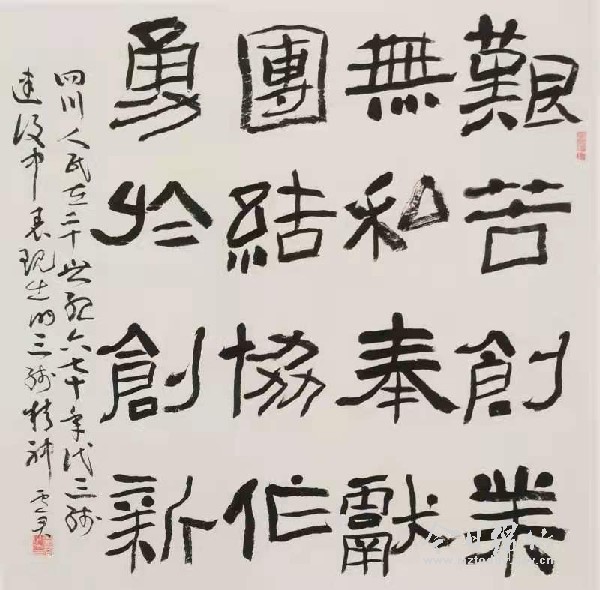 艱苦創業
無私奉獻
團結協作
勇於創新
四川人民在二十世紀六七十年代三線
建設中表現出的三線精神